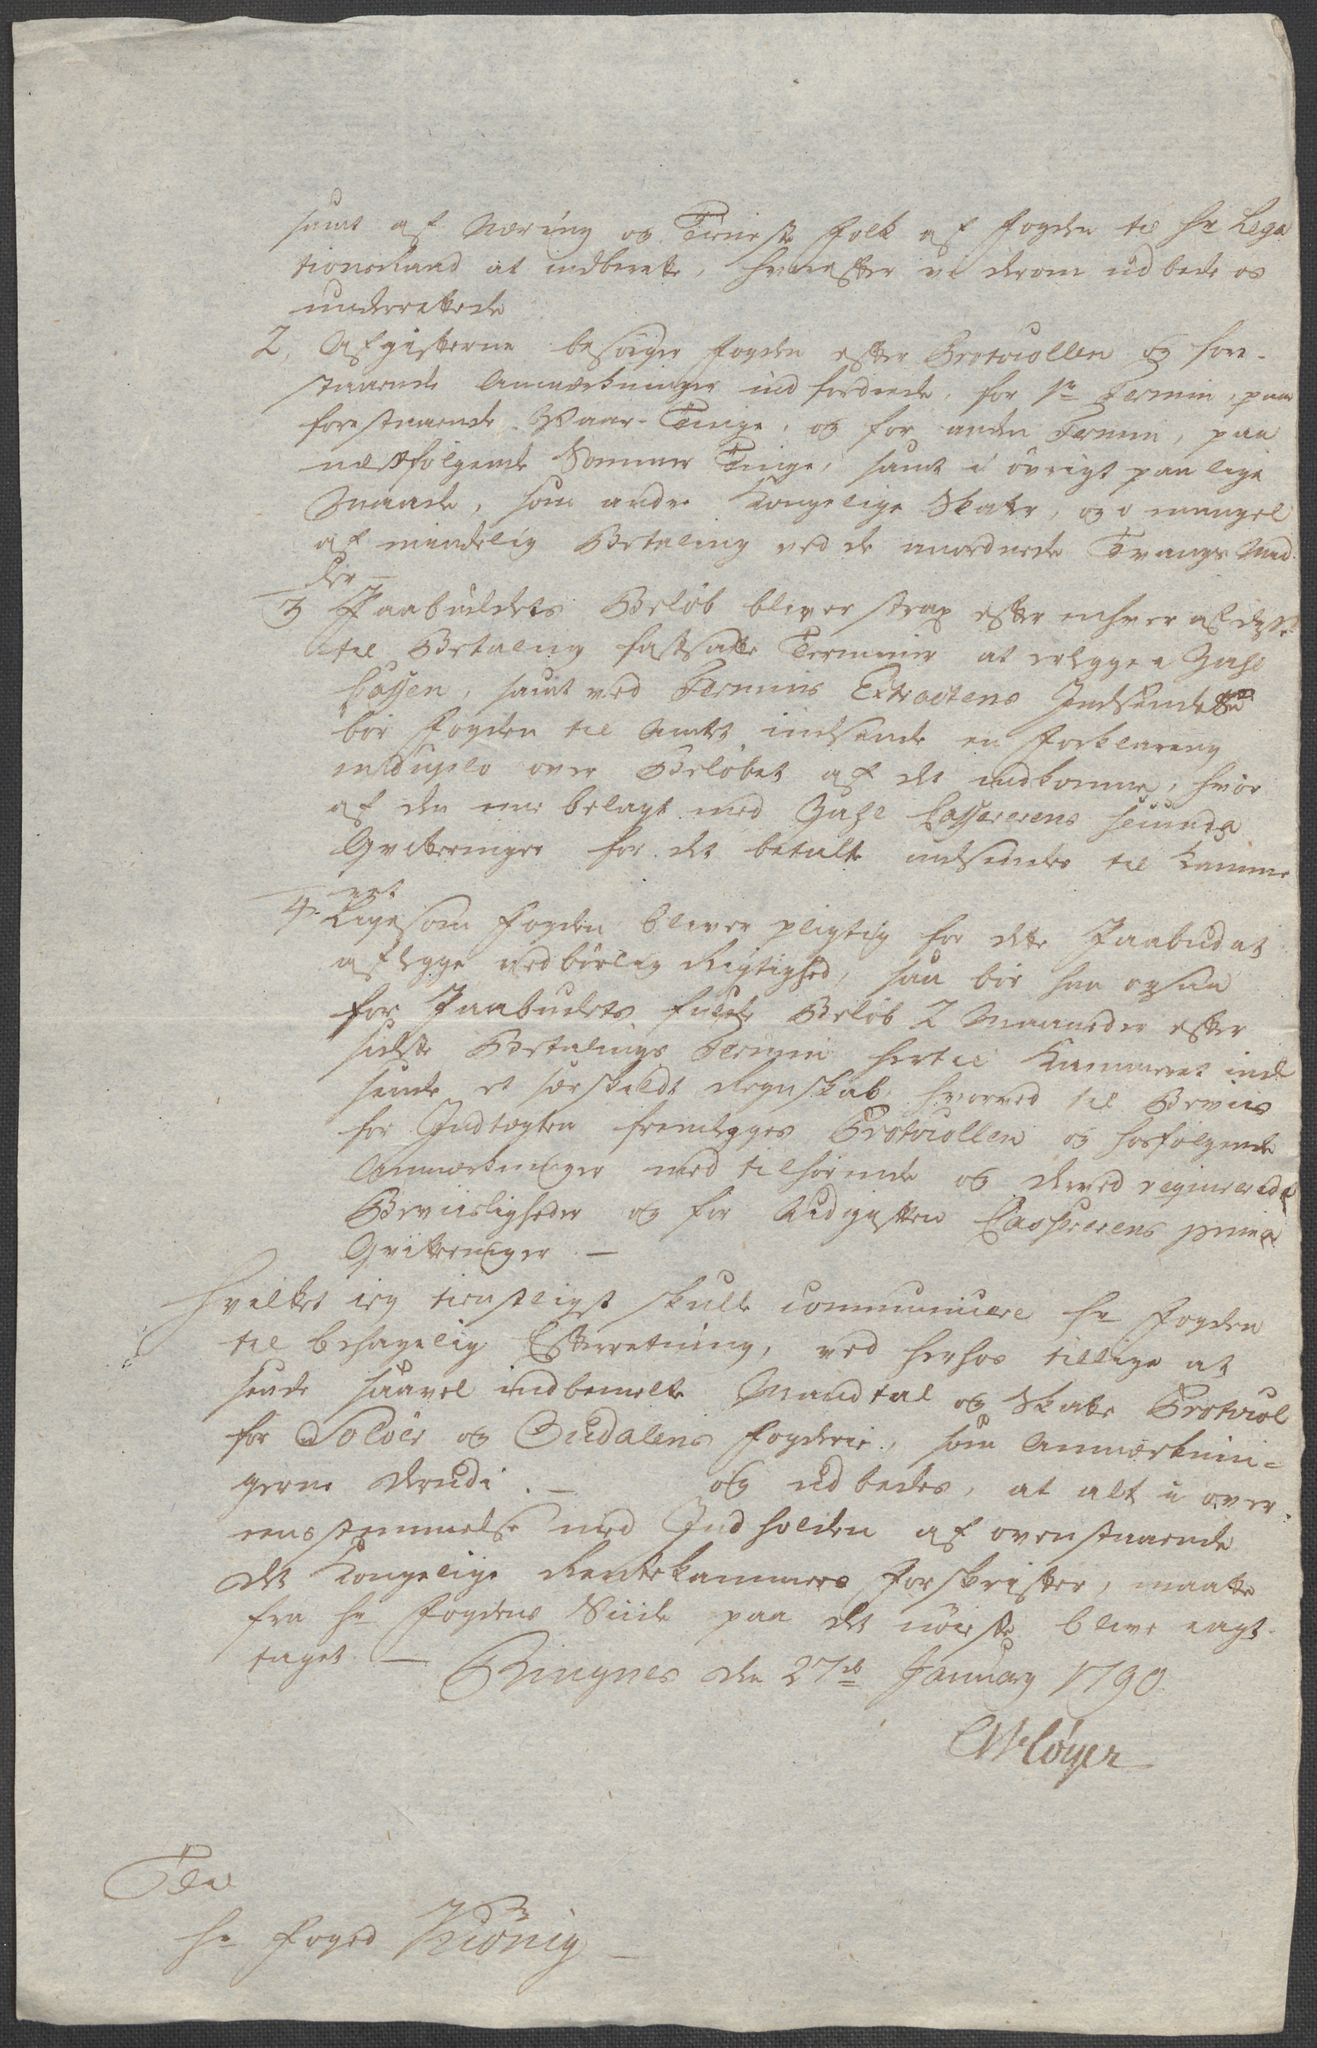 samt af Næring og Tieneste Folk af Fogden til Hr Lega
tionsraad at indberette, hvorefter vi derom udbede os
underrettede
2, Afgifterne besørger Fogden efter Protocollen og fore-
staaende Anmærkninger indfordrede, for 1te Termin, paa
forestaaende Vaar-Tinge, og for anden Termin, paa
næstfølgende Sommer Tinge, samt i øvrigt paa lige
Maade, som andre Kongelige Skatter, og i mangel
af mindelig Betaling ved de anordnede Tvangs Mid-
der
3 Paabudets Beløb bliver strax efter enhver af disse
til Betaling fastsatte Terminer at erlegge i Zahl
Cassen, samt ved Termins Extractens Indsendelse
bør Fogden til Amtet indsende en Forklaring
in duplo over Beløbet af det indkomne, hvor
af den ene belagt med Zahl Cassererens secunda
Qvitteringer for det betalte indsendes til Kamme
ret
4. Ligesom Fogden bliver pligtig for dette Paabud at
aflegge tilbørlig Rigtighed, saa bør han ogsaa
for Paabudets fulde Beløb 2 Maaneder efter
sidste Betalings Termin hertil Kammeret ind
sende et særskildt Regnskab, hvorved til Beviis
for Indtægten fremlegges Protocollen og hosfølgende
Anmærkninger med tilhørende og derved reqvirerede
Beviisligheder og for Udgiften Cassererens prima
Qvitteringer. —
Hvilket ieg tienstligst skulle communicere Hr Fogden
til behagelig Efterretning, ved herhos tillige at
sende saavel indbemelte Mandtal og Skatte Protocol
for Soløer og Oudalens Fogderie, som Anmærknin-
gerne derudi. — og udbedes, at alt i over-
eensstemmelse med Indholden af ovenstaaende
det Kongelige Rentekammers Forskrifter, maatte
fra Hr Fogdens Siide paa det nøieste blive iagt-
taget. — Ringnes den 27de January 1790.
Til
Hr Foged Kiönig —